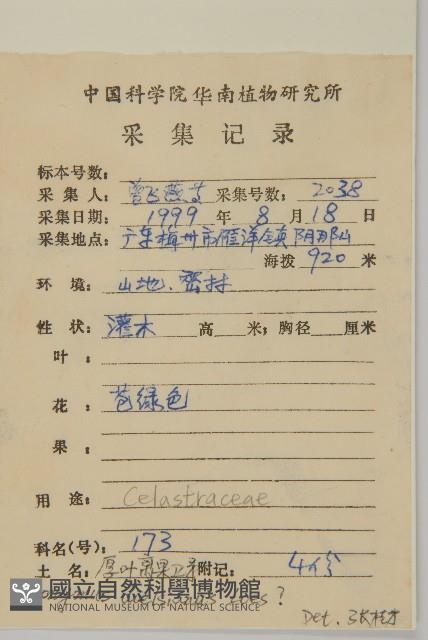 中国科学院华南植物研究所
采集记录
标本号数:
采集人: 曾飞燕等 采集号数: 2038
采集日期: 1999 年 8 月 18 日
采集地点: 广东梅州市雁洋镇阴那山
海拨 920 米
环境: 山地、密林
性状: 灌木 高 米; 胸径 厘米
叶:
花: 苞绿色
果:
用途: Celastraceae
科名(号): 173
土名: 厚叶 附记: 4份
國立自然科學博物館
NATIONAL MUSEUM OF NATURAL SCIENCE
?
Det. 张桂才